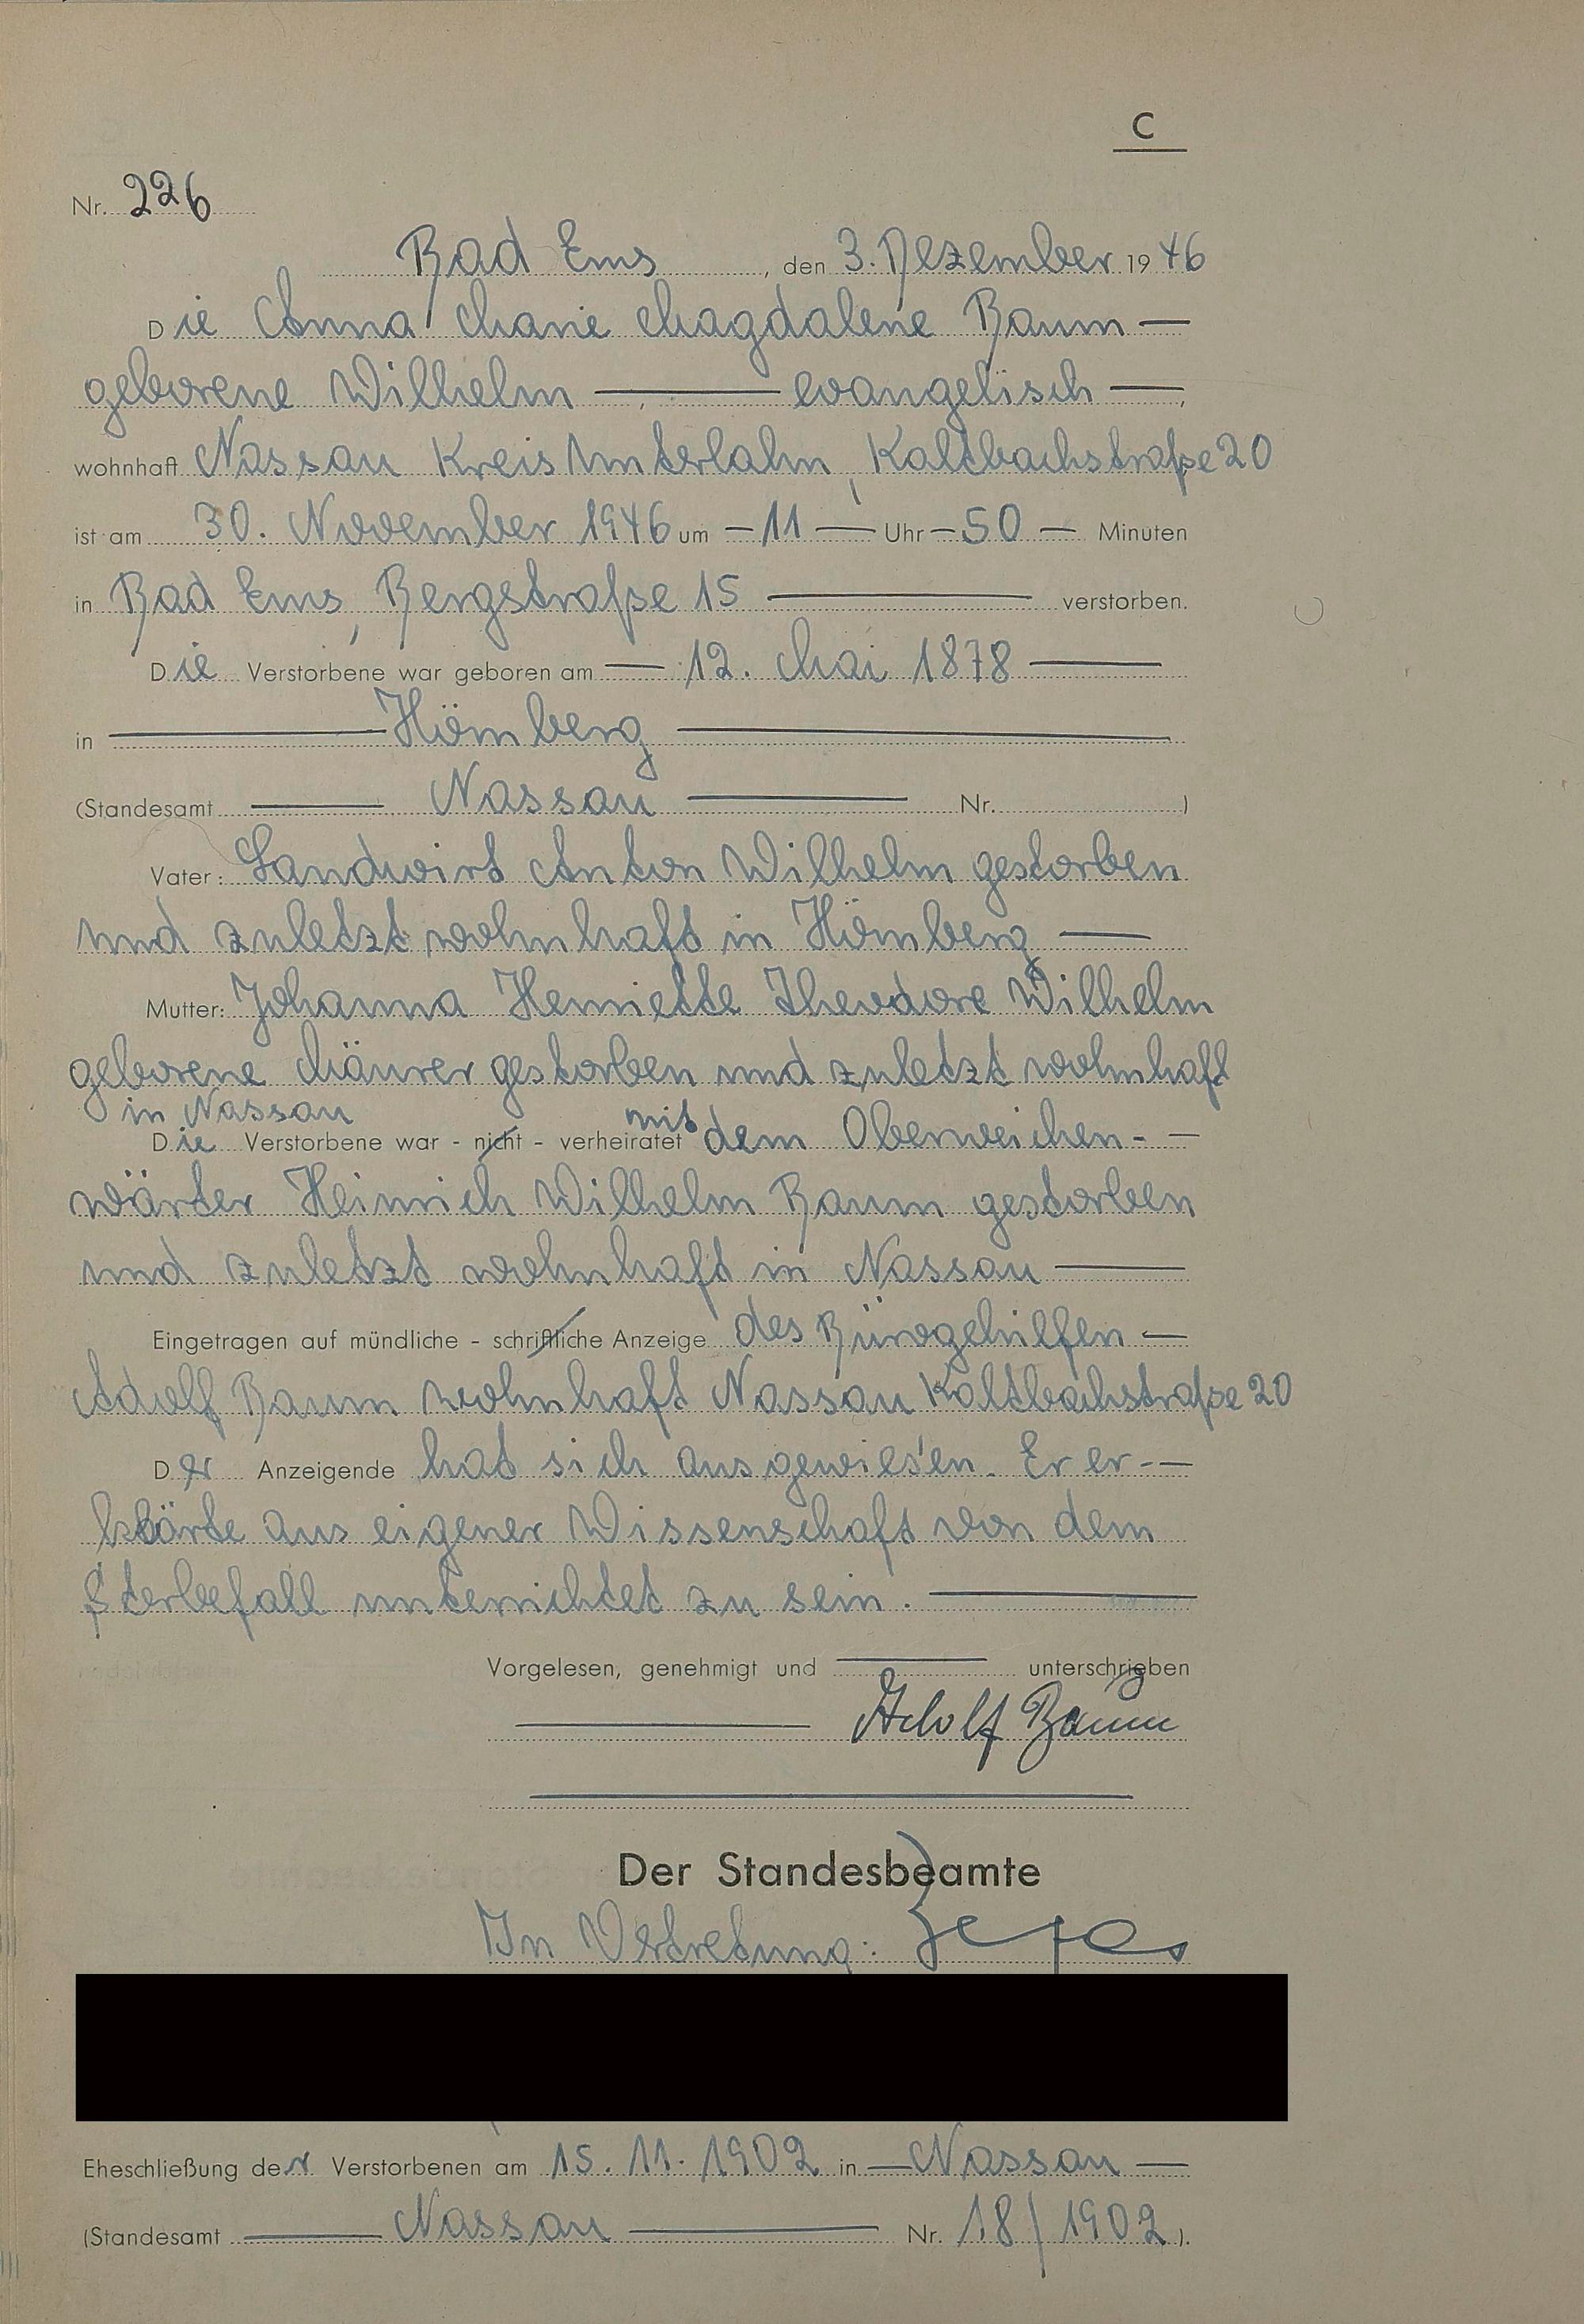 C
Nr. 226
Bad Ems, den 3. Dezember 1946
Die Anna Marie Magdalene Baum —
geborene Wilhelm — evangelisch —,
wohnhaft Nassau Kreis Unterlahn, Kaltbachstraße 20
ist am 30. November 1946 um — 11 — Uhr — 50 — Minuten
in Bad Ems, Bergstraße 15 — verstorben.
Die Verstorbene war geboren am — 12. Mai 1878 —
in — Hömberg —
(Standesamt — Nassau — Nr. )
Vater: Landwirt Anton Wilhelm gestorben
und zuletzt wohnhaft in Hömberg —
Mutter: Johanna Henriette Theodore Wilhelm
geborene Mäurer gestorben und zuletzt wohnhaft
in Nassau
Die Verstorbene war - nicht - verheiratet mit dem Oberweichen- —
wärter Heinrich Wilhelm Baum gestorben
und zuletzt wohnhaft in Nassau —
Eingetragen auf mündliche - schriftliche Anzeige des Bürogehilfen —
Adolf Baum wohnhaft Nassau Kaltbachstraße 20
Der Anzeigende hat sich ausgewiesen. Er er- —
klärte aus eigener Wissenschaft von dem
Sterbefall unterrichtet zu sein. —
Vorgelesen, genehmigt und — unterschrieben
— Adolf Baum
Der Standesbeamte
In Vertretung:
Eheschließung der Verstorbenen am 15. 11. 1902 in — Nassau —
(Standesamt — Nassau — Nr. 18/1902).